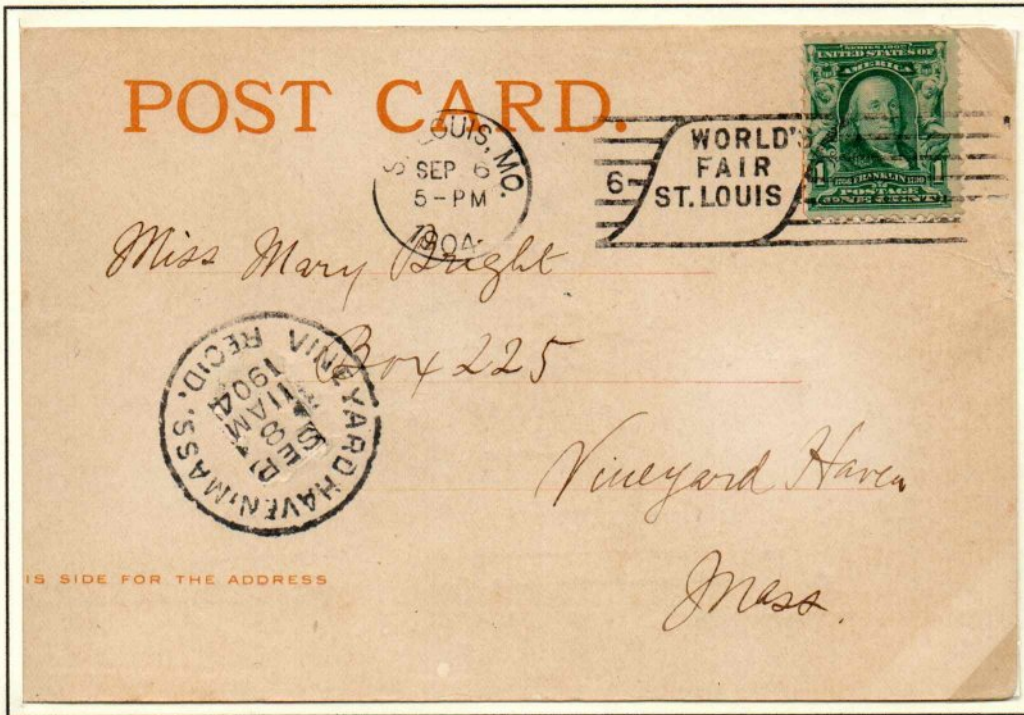 POST CARD.
ST. LOUIS, MO.
SEP 6
5-PM
1904
6
WORLD'S
FAIR
ST. LOUIS
SERIES 1902
UNITED STATES OF
AMERICA
1 1706 FRANKLIN 1790 1
POSTAGE
ONE CENT
Miss Mary Bright
Box 225
Vineyard Haven
Mass.
VINEYARD HAVEN, MASS.
REC'D.
SEP
8
11 AM
1904
IS SIDE FOR THE ADDRESS